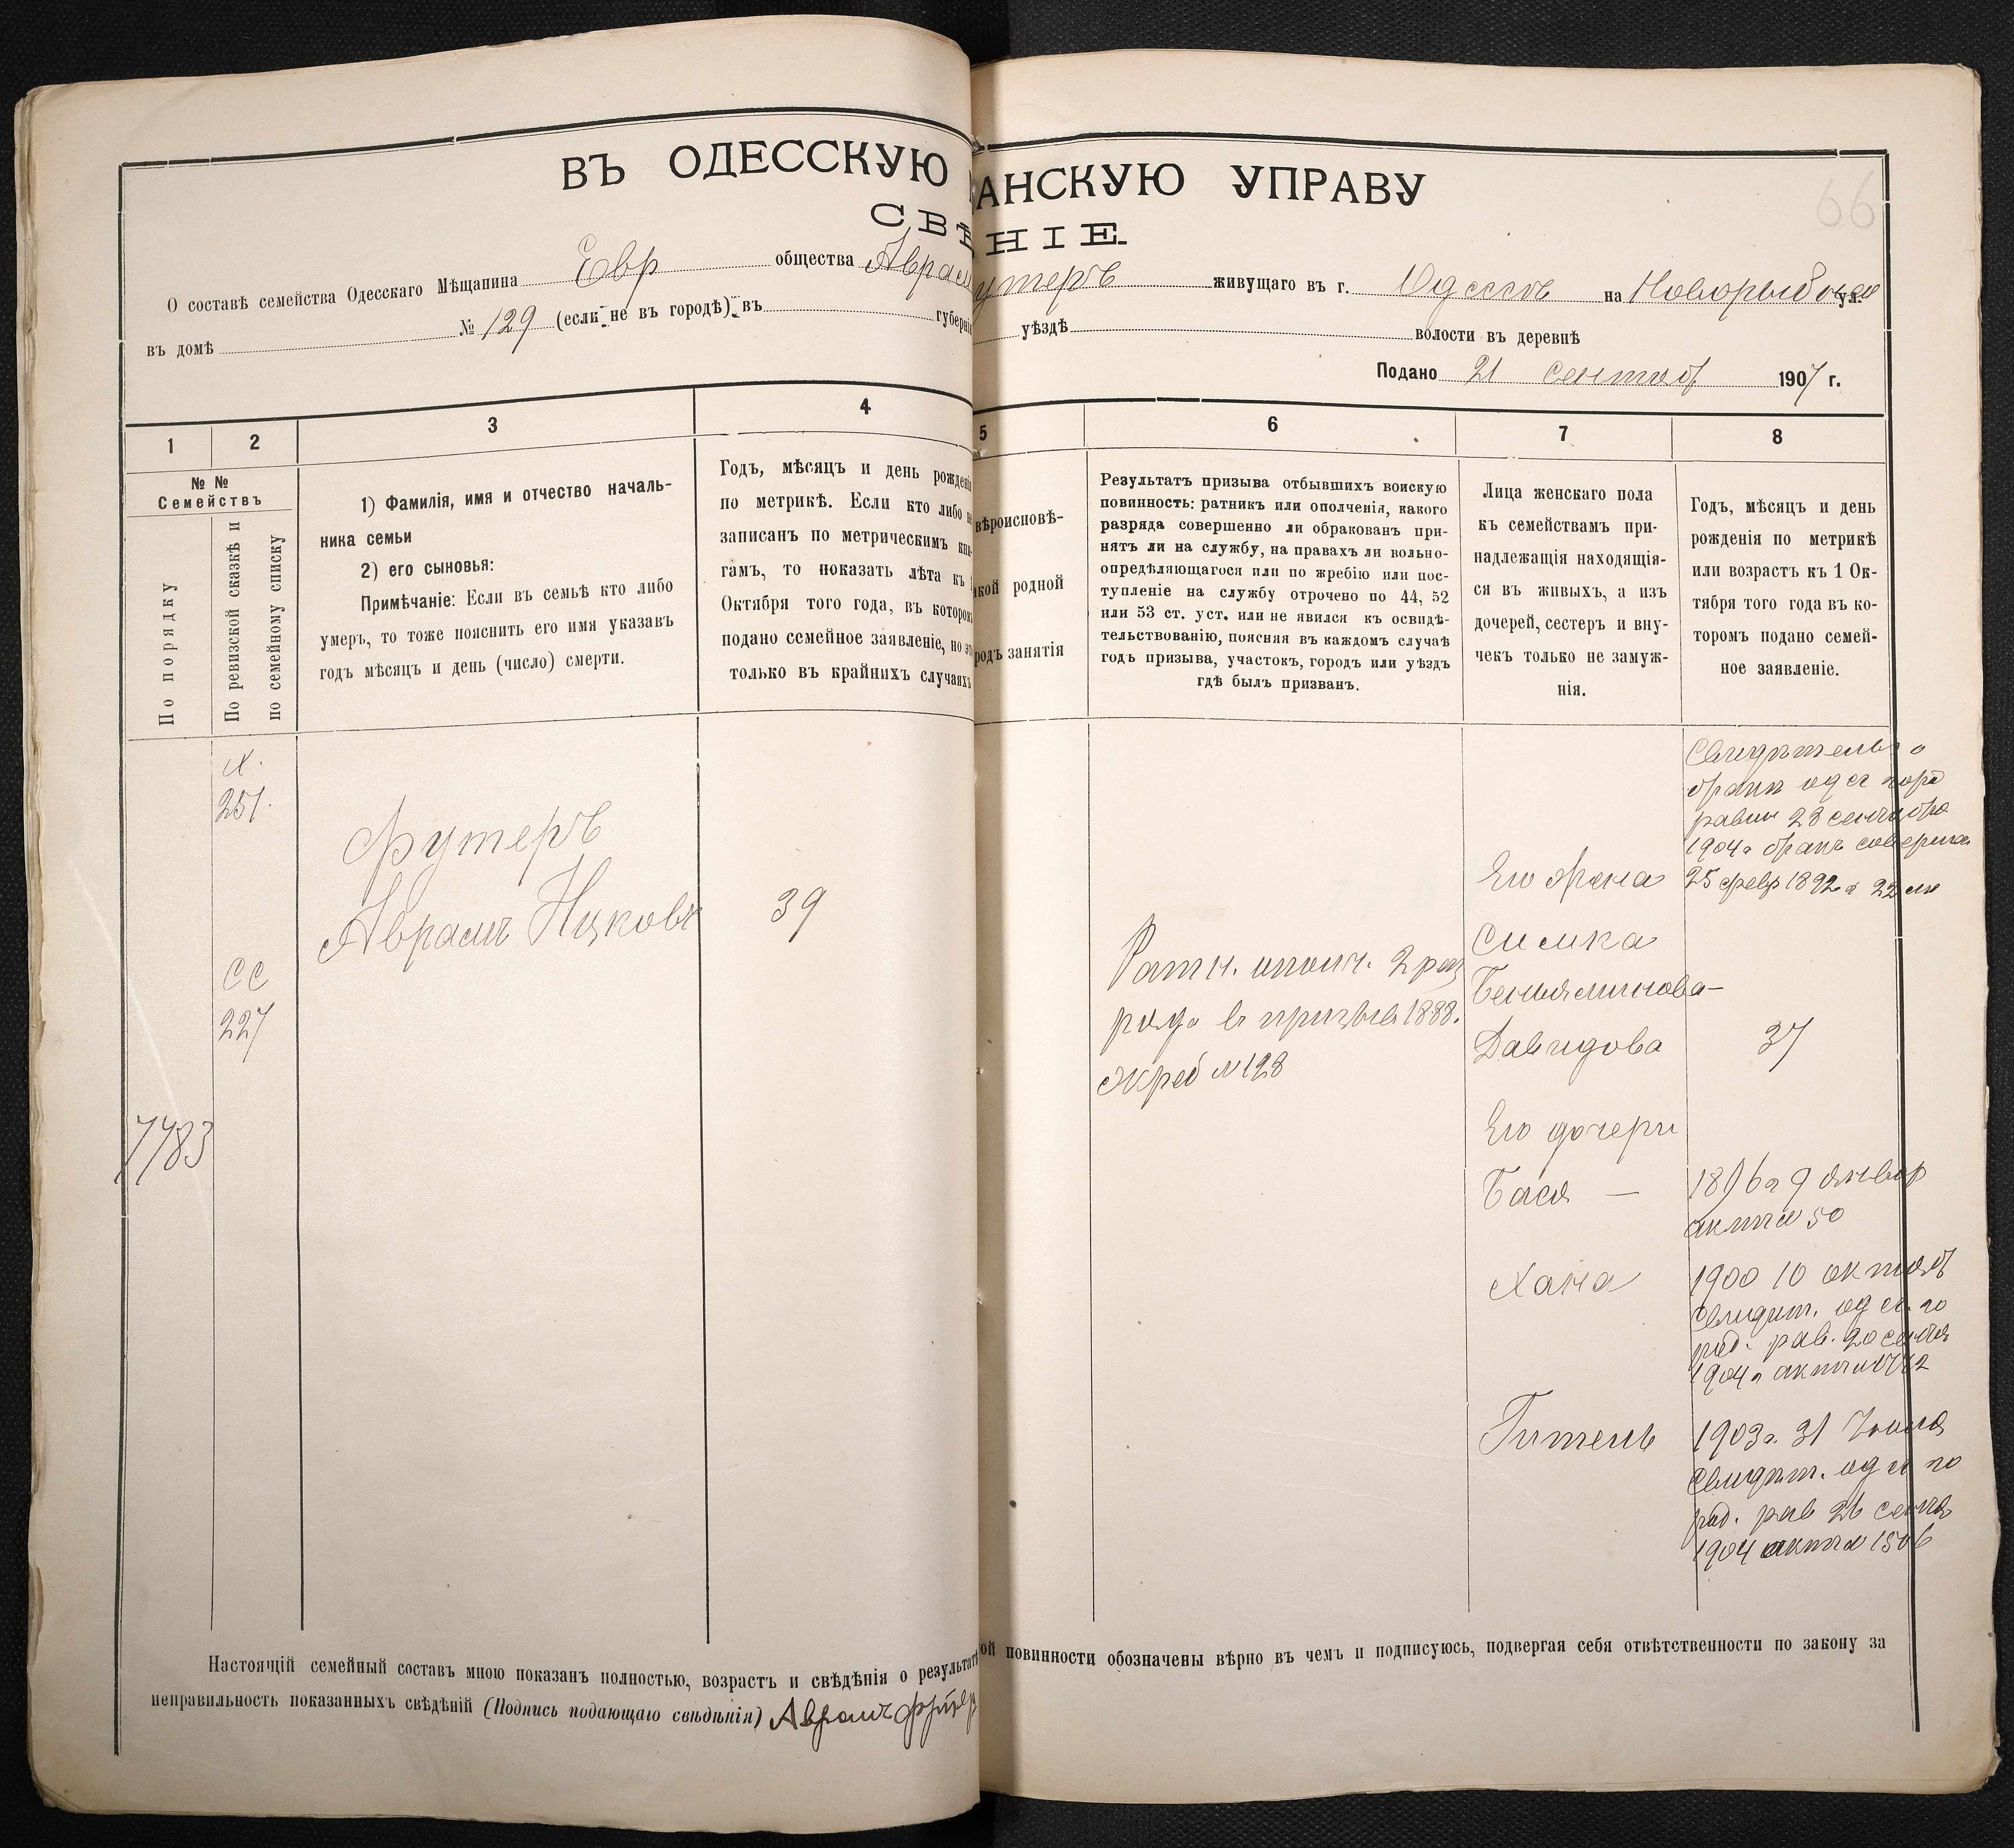 66
ВЪ ОДЕССКУЮ АНСКУЮ УПРАВУ
СВѢ НІЕ
О составѣ семейства Одесскаго Мѣщанина Евр общества Аврам утеръ живущаго въ г. Одессѣ на Новорыбной ул.
въ домѣ № 129 (если не въ городѣ) въ губерні уѣздѣ волости въ деревнѣ
Подано 21 сентяб 1907 г.
1 2 3 4 5 6 7 8
№ №
Семействъ
По порядку
По ревизской сказкѣ и
по семейному списку
1) Фамилія, имя и отчество началь-
ника семьи
2) его сыновья:
Примѣчаніе: Если въ семьѣ кто либо
умеръ, то тоже пояснить его имя указавъ
годъ мѣсяцъ и день (число) смерти.
Годъ, мѣсяцъ и день рожденія
по метрикѣ. Если кто либо не
записанъ по метрическимъ кни-
гамъ, то показать лѣта къ 1
Октября того года, въ которомъ
подано семейное заявленіе, но это
только въ крайнихъ случаяхъ
вѣроисповѣ-
акой родной
родъ занятія
Результатъ призыва отбывшихъ воискую
повинность: ратникъ или ополченія, какого
разряда совершенно ли обракованъ при-
нятъ ли на службу, на правахъ ли вольно-
опредѣляющагося или по жребію или пос-
тупленіе на службу отрочено по 44, 52
или 53 ст. уст. или не явился къ освидѣ-
тельствованію, поясняя въ каждомъ случаѣ
годъ призыва, участокъ, городъ или уѣздъ
гдѣ былъ призванъ.
Лица женскаго пола
къ семействамъ при-
надлежащія находящія-
ся въ живыхъ, а изъ
дочерей, сестеръ и вну-
чекъ только не замуж-
нія.
Годъ, мѣсяцъ и день
рожденія по метрикѣ
или возрастъ къ 1 Ок-
тября того года въ ко-
торомъ подано семей-
ное заявленіе.
251.
Футеръ
Аврамъ Ицковъ
39
СС
227
7783
Ратн. ополч. 2 раз
ряда въ призывъ 1888.
жреб № 128
Свидѣтельс о
бракѣ одес горо
равин 28 сентября
1904 г бракъ соверша
25 февр 1892 г 22 лѣ
Его жена
Симка
Беньяминова-
Давидова
37
Его дочери
Бася —
1896 г 9 январ
актъ № 50
Хана
1900 10 октяб
Свидѣт. одес. го
род. рав. 20 сентя
1904 г актъ №
Гитель
1903 г. 31 Іюля
Свидѣт. одес го
род. рав 26 сентя
1904 актъ № 1506
Настоящій семейный составъ мною показанъ полностью, возрастъ и свѣдѣнія о результатѣ ой повинности обозначены вѣрно въ чемъ и подписуюсь, подвергая себя отвѣтственности по закону за
неправильность показанныхъ свѣдѣній (Подпись подающаго свѣдѣнія) Аврамъ Футер